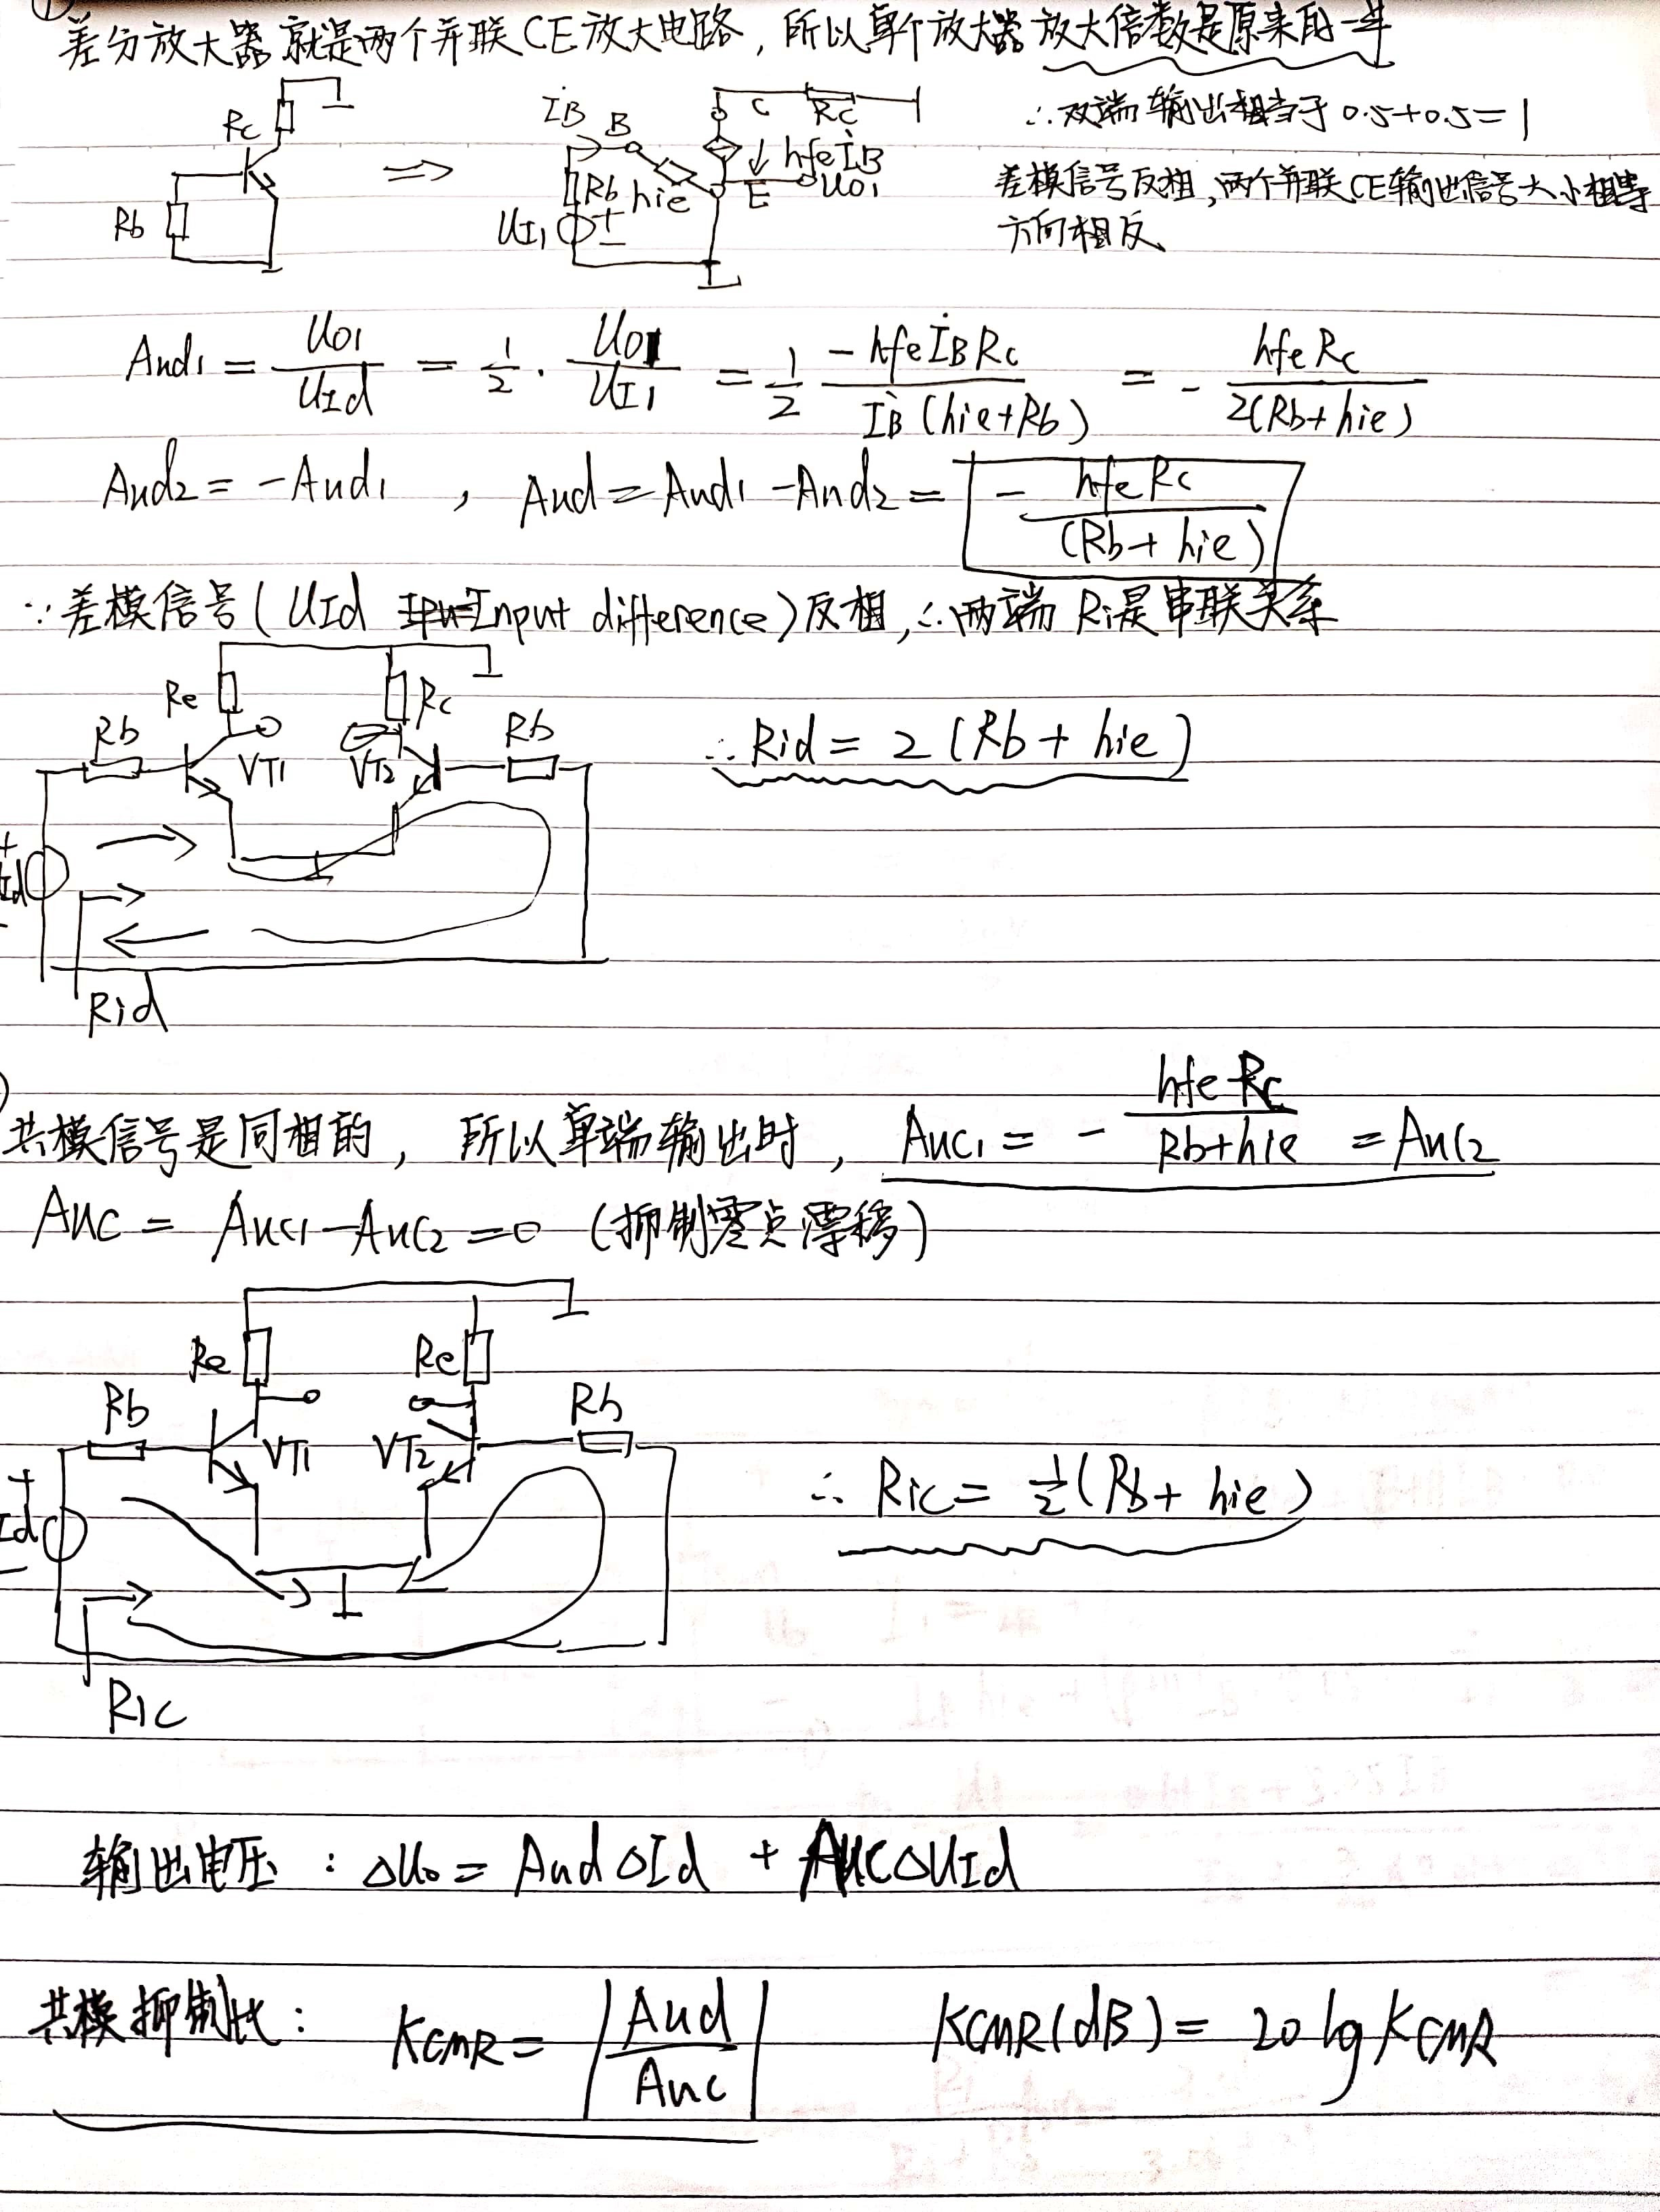 ①
差分放大器就是两个并联CE放大电路，所以单个放大器放大倍数是原来的一半
∴双端输出相当于0.5+0.5=1
差模信号反相，两个并联CE输出信号大小相等
方向相反、
Rc
Rb
⇒
İB B
Rb hie
UI1 + −
C Rc
↓ hfeİB
E Uo1
Aud1 = Uo1/UId = 1/2 · Uo1/UI1 = 1/2 −hfeİBRc/İB(hie+Rb) = − hfeRc/2(Rb+hie)
Aud2 = −Aud1 ， Aud = Aud1 −Aud2 = − hfeRc/(Rb+hie)
∵差模信号(UId Input difference)反相,∴两端Ri是串联关系
Re Rc
Rb VT1 VT2 Rb
+ Id −
Rid
∴Rid = 2(Rb+hie)
共模信号是同相的，所以单端输出时，Auc1 = − hfeRc/Rb+hie = Auc2
Auc = Auc1−Auc2 =0 (抑制零点漂移)
Re Re
Rb VT1 VT2 Rb
+ Id −
Ric
∴ Ric = 1/2(Rb+hie)
输出电压：△Uo = Aud△Id + Auc△UId
共模抑制比： KCMR = |Aud/Auc| KCMR(dB) = 20lgKCMR